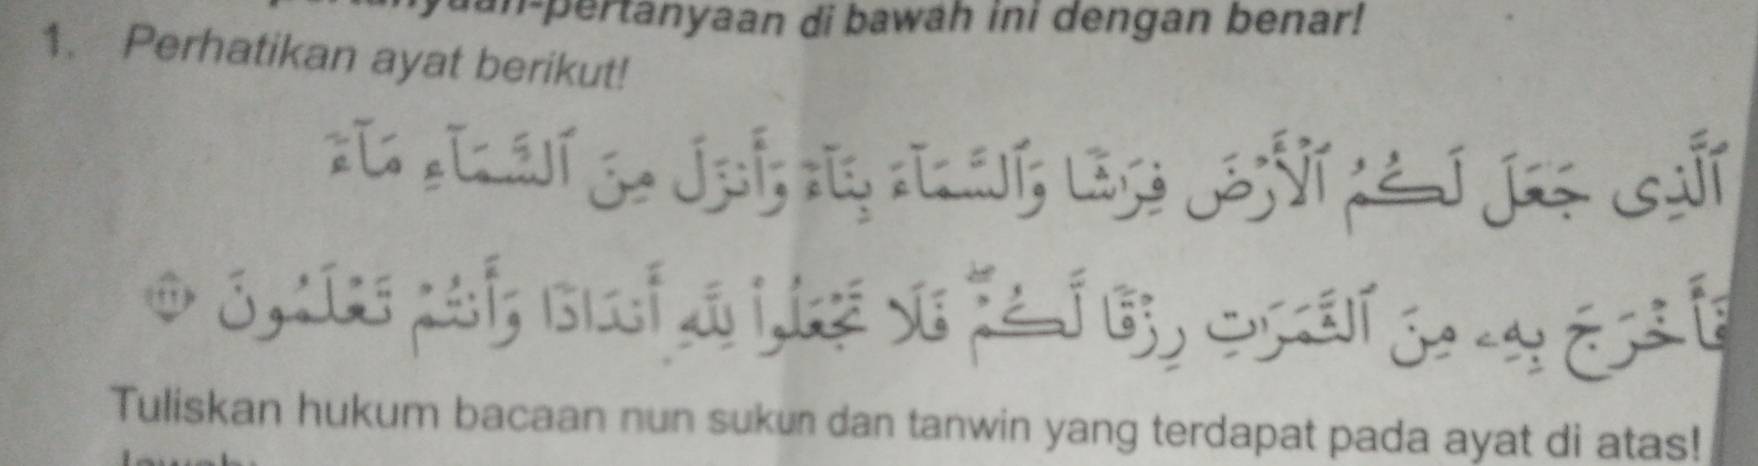 -pertanyaan di bawah ini dengan benar!
1. Perhatikan ayat berikut!
ٱلَّذِى جَعَلَ لَكُمُ ٱلْأَرْضَ فِرَٰشًا وَٱلسَّمَآءَ بِنَآءً وَأَنزَلَ مِنَ ٱلسَّمَآءِ مَآءً
فَأَخْرَجَ بِهِۦ مِنَ ٱلثَّمَرَٰتِ رِزْقًا لَّكُمْ ۖ فَلَا تَجْعَلُوا۟ لِلَّهِ أَندَادًا وَأَنتُمْ تَعْلَمُونَ ۝٢٢
Tuliskan hukum bacaan nun sukun dan tanwin yang terdapat pada ayat di atas!